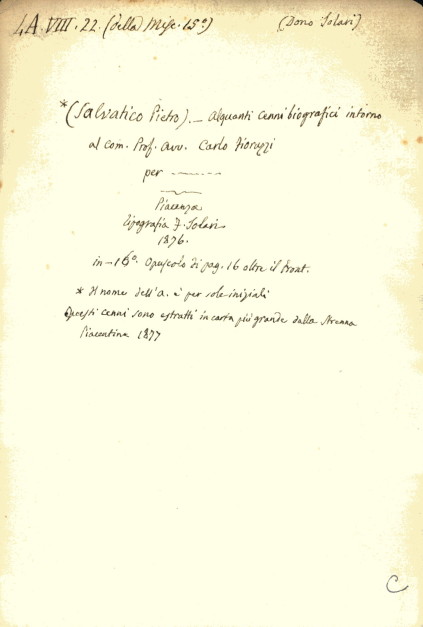 4A.VIII.22. (della Misc. 15ª) (Dono Solari)
*(Salvatico Pietro). — Alquanti cenni biografici intorno
al com. Prof. Avv. Carlo Fioruzzi
per
Piacenza
tipografia F. Solari
1876.
in-16º. Opuscolo di pag. 16 oltre il front.
* Il nome dell'A. è per sole iniziali
Questi cenni sono estratti in carta più grande dalla Strenna
Piacentina 1877
C